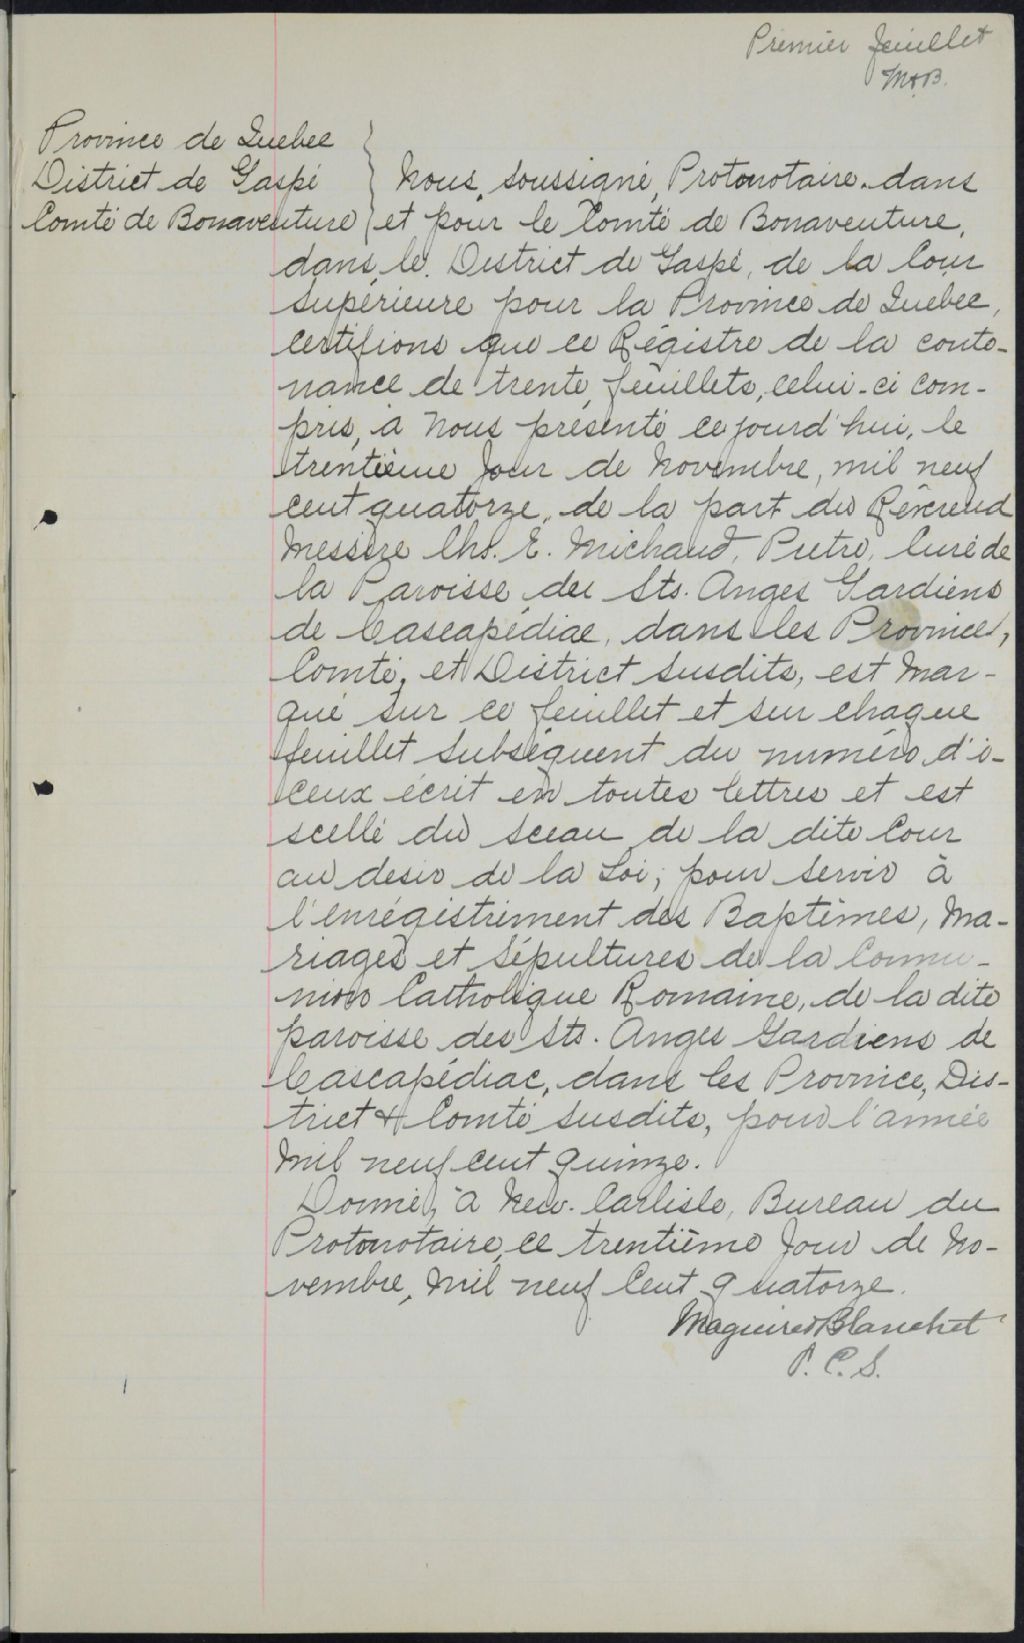 Premier feuillet
M&B.
Province de Quebec
District de Gaspé
Comté de Bonaventure
Nous, soussigné, Protonotaire dans
et pour le Comté de Bonaventure,
dans le District de Gaspé, de la Cour
Supérieure pour la Province de Quebec,
Certifions que ce Régistre de la conte-
nance de trente feuillets, celui-ci com-
pris, à Nous présenté cejourd'hui, le
trentième Jour de Novembre, mil neuf
cent quatorze, de la part du Révérend
Messire Chs. E. Michaud, Prêtre, Curé de
la Paroisse des Sts. Anges Gardiens
de Cascapédiac, dans les Province,
Comté, et District susdits, est Mar-
qué sur ce feuillet et sur chaque
feuillet subséquent du numéro d'i-
ceux écrit en toutes lettres et est
scellé du sceau de la dite Cour
au desir de la Loi, pour servir à
l'enrégistrement des Baptêmes, Ma-
riages et Sépultures de la Commu-
nion Catholique Romaine, de la dite
paroisse des Sts. Anges Gardiens de
Cascapédiac, dans les Province, Dis-
trict & Comté susdits, pour l'année
Mil neuf cent quinze.
Donné, à New-Carlisle, Bureau du
Protonotaire, ce trentième Jour de No-
vembre, Mil neuf Cent quatorze.
Maguire & Blanchet
P. C. S.